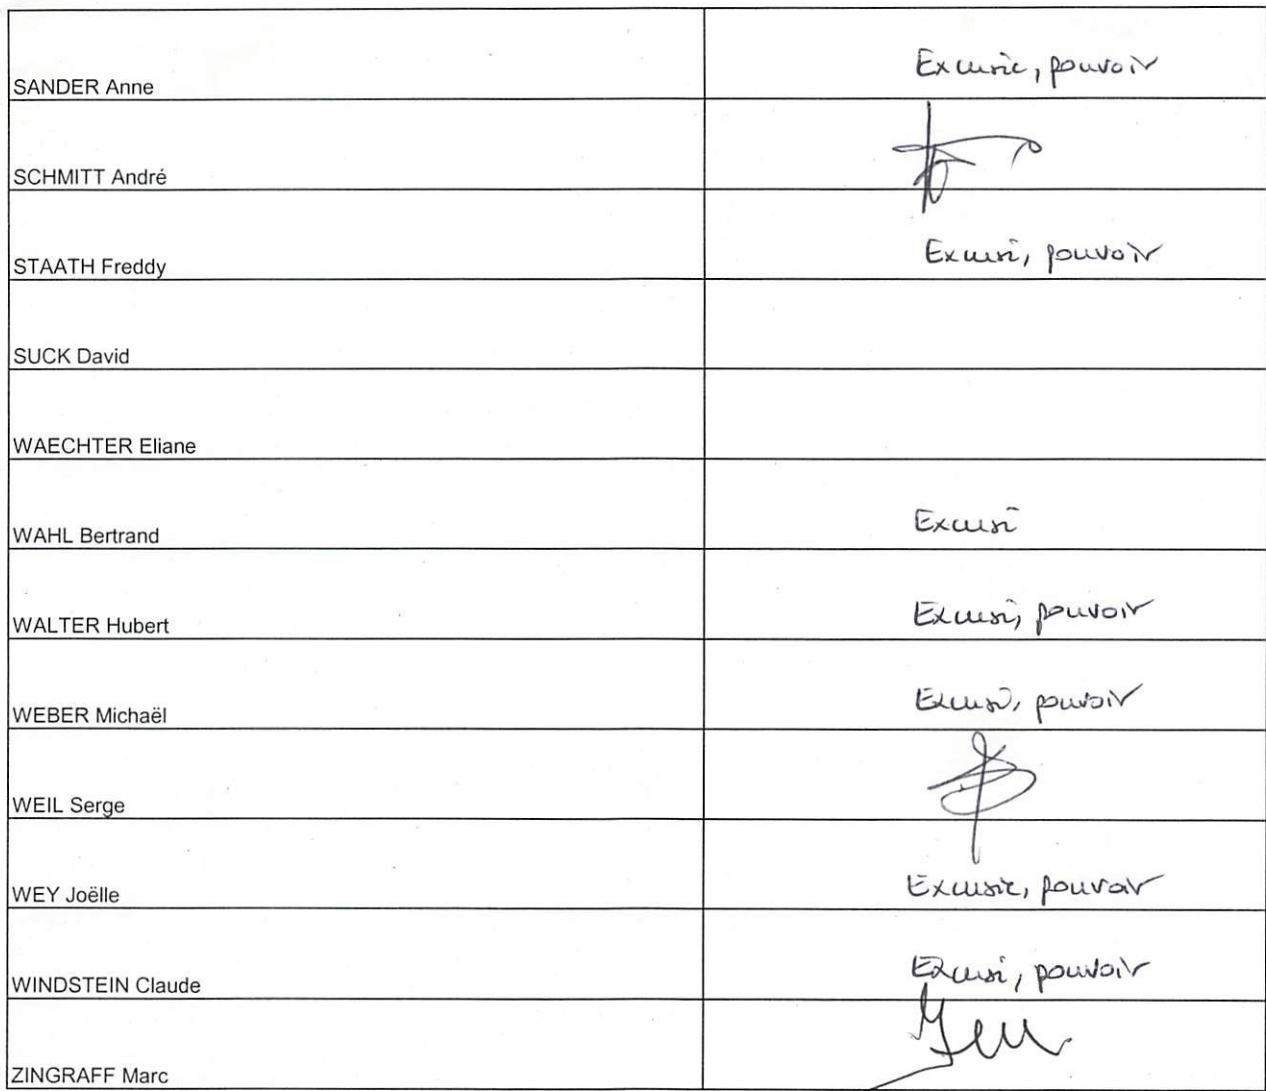 SANDER Anne
Excusée, pouvoir
SCHMITT André
STAATH Freddy
Excusé, pouvoir
SUCK David
WAECHTER Eliane
WAHL Bertrand
Excusé
WALTER Hubert
Excusé, pouvoir
WEBER Michaël
Excusé, pouvoir
WEIL Serge
WEY Joëlle
Excusée, pouvoir
WINDSTEIN Claude
Excusé, pouvoir
ZINGRAFF Marc